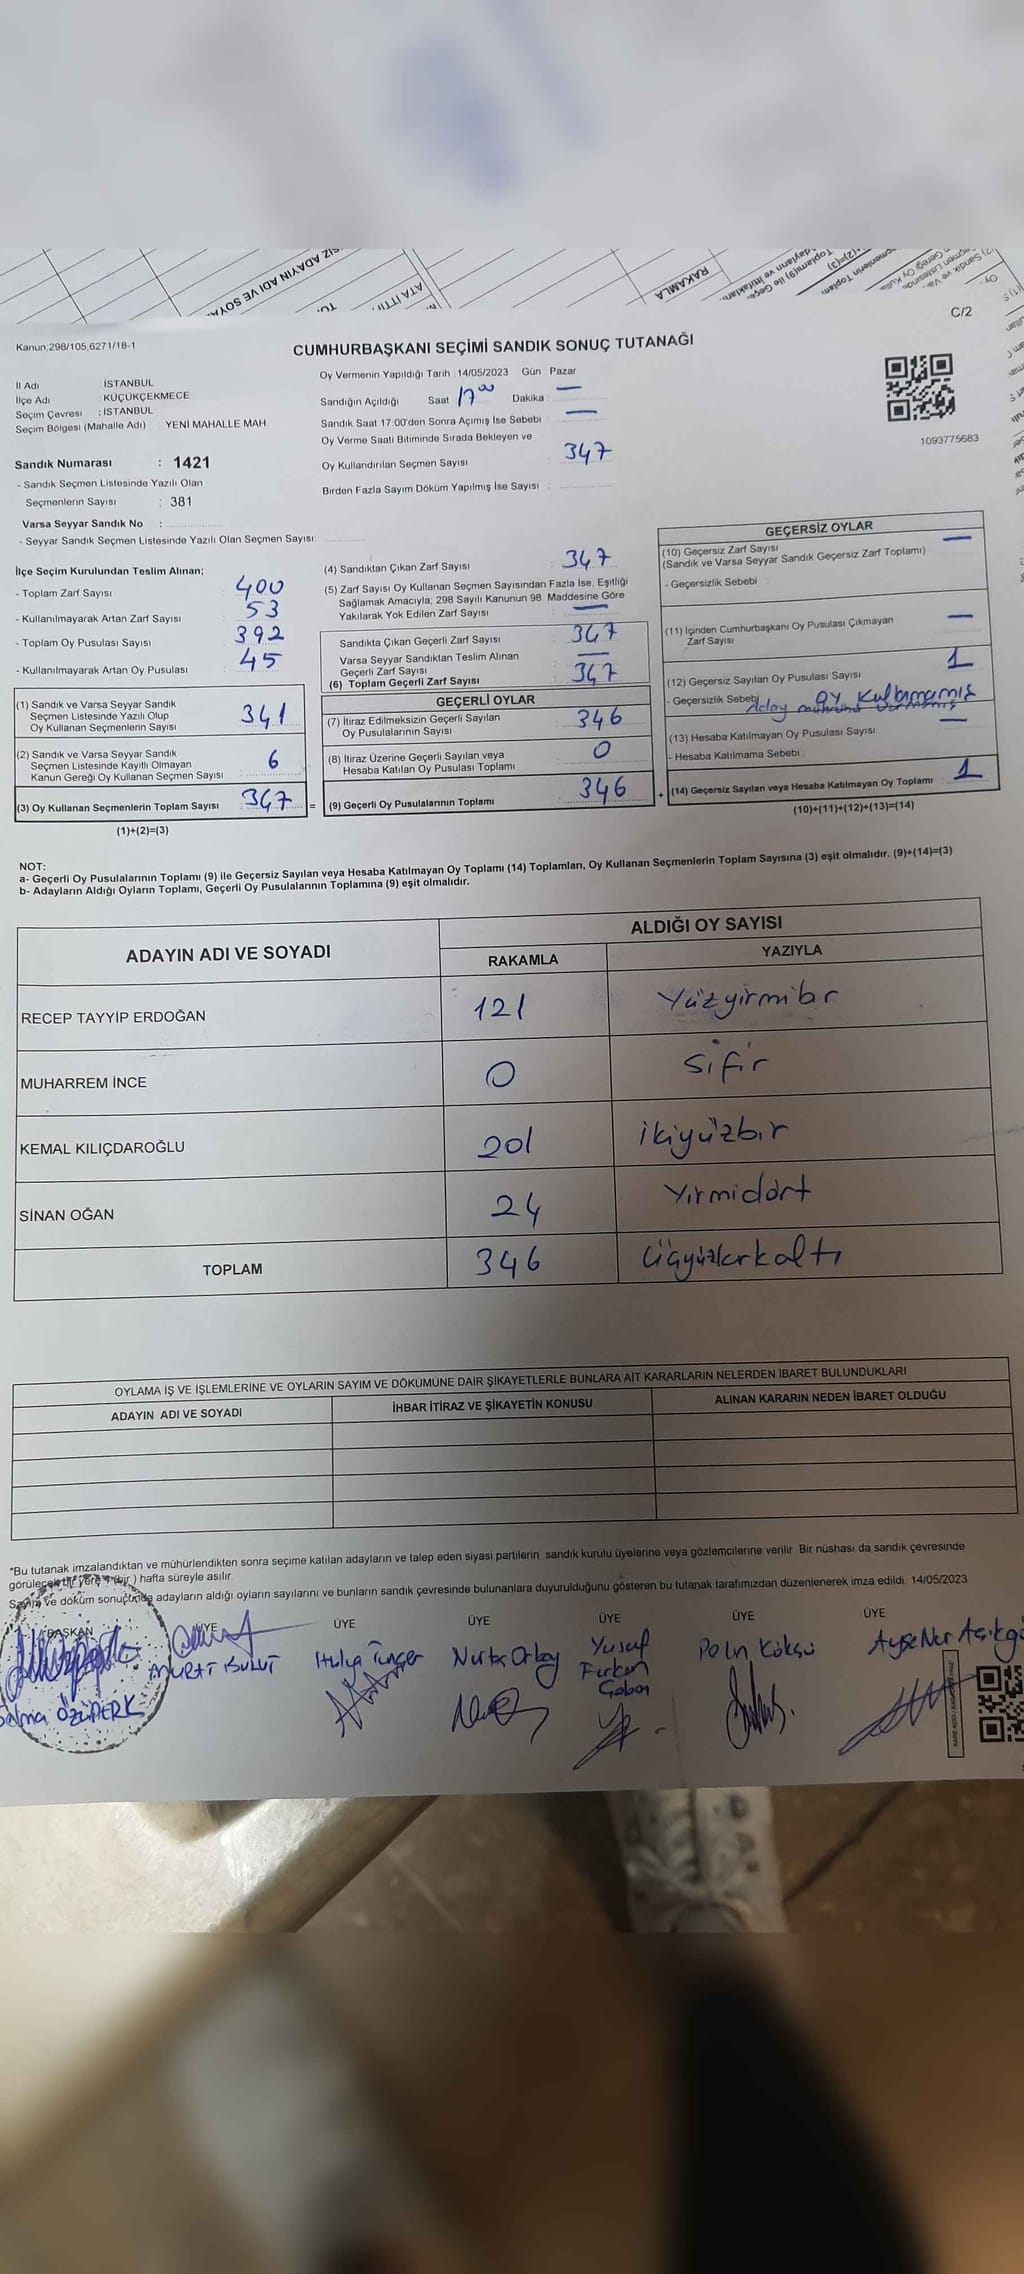 C/2
Kanun;298/105,6271/18-1
CUMHURBAŞKANI SEÇİMİ SANDIK SONUÇ TUTANAĞI
1093775683
İl Adı İSTANBUL
İlçe Adı KÜÇÜKÇEKMECE
Seçim Çevresi : İSTANBUL
Seçim Bölgesi (Mahalle Adı) YENİ MAHALLE MAH.
Sandık Numarası : 1421
- Sandık Seçmen Listesinde Yazılı Olan
Seçmenlerin Sayısı : 381
Varsa Seyyar Sandık No :
- Seyyar Sandık Seçmen Listesinde Yazılı Olan Seçmen Sayısı:
Oy Vermenin Yapıldığı Tarih :14/05/2023 Gün : Pazar
Sandığın Açıldığı Saat 17⁰⁰ Dakika : —
Sandık Saat 17:00'den Sonra Açımış İse Sebebi : —
Oy Verme Saati Bitiminde Sırada Bekleyen ve
Oy Kullandırılan Seçmen Sayısı : 347
Birden Fazla Sayım Döküm Yapılmış İse Sayısı :
İlçe Seçim Kurulundan Teslim Alınan;
- Toplam Zarf Sayısı 400
- Kullanılmayarak Artan Zarf Sayısı 53
- Toplam Oy Pusulası Sayısı 392
- Kullanılmayarak Artan Oy Pusulası 45
(1) Sandık ve Varsa Seyyar Sandık
Seçmen Listesinde Yazılı Olup
Oy Kullanan Seçmenlerin Sayısı 341
(2) Sandık ve Varsa Seyyar Sandık
Seçmen Listesinde Kayıtlı Olmayan
Kanun Gereği Oy Kullanan Seçmen Sayısı 6
(3) Oy Kullanan Seçmenlerin Toplam Sayısı 347 =
(1)+(2)=(3)
(4) Sandıktan Çıkan Zarf Sayısı : 347
(5) Zarf Sayısı Oy Kullanan Seçmen Sayısından Fazla İse, Eşitliği
Sağlamak Amacıyla; 298 Sayılı Kanunun 98. Maddesine Göre
Yakılarak Yok Edilen Zarf Sayısı : —
Sandıkta Çıkan Geçerli Zarf Sayısı : 347
Varsa Seyyar Sandıktan Teslim Alınan
Geçerli Zarf Sayısı : —
(6) Toplam Geçerli Zarf Sayısı : 347
GEÇERLİ OYLAR
(7) İtiraz Edilmeksizin Geçerli Sayılan
Oy Pusulalarının Sayısı : 346
(8) İtiraz Üzerine Geçerli Sayılan veya
Hesaba Katılan Oy Pusulası Toplamı : 0
(9) Geçerli Oy Pusulalarının Toplamı : 346 +
GEÇERSİZ OYLAR
(10) Geçersiz Zarf Sayısı —
(Sandık ve Varsa Seyyar Sandık Geçersiz Zarf Toplamı)
- Geçersizlik Sebebi
(11) İçinden Cumhurbaşkanı Oy Pusulası Çıkmayan
Zarf Sayısı —
(12) Geçersiz Sayılan Oy Pusulası Sayısı 1
- Geçersizlik Sebebi Oy Kullanmamış
(13) Hesaba Katılmayan Oy Pusulası Sayısı —
- Hesaba Katılmama Sebebi
(14) Geçersiz Sayılan veya Hesaba Katılmayan Oy Toplamı 1
(10)+(11)+(12)+(13)=(14)
NOT:
a- Geçerli Oy Pusulalarının Toplamı (9) ile Geçersiz Sayılan veya Hesaba Katılmayan Oy Toplamı (14) Toplamları, Oy Kullanan Seçmenlerin Toplam Sayısına (3) eşit olmalıdır. (9)+(14)=(3)
b- Adayların Aldığı Oyların Toplamı, Geçerli Oy Pusulalarının Toplamına (9) eşit olmalıdır.
ADAYIN ADI VE SOYADI
ALDIĞI OY SAYISI
RAKAMLA YAZIYLA
RECEP TAYYİP ERDOĞAN 121 Yüzyirmibr
MUHARREM İNCE 0 Sıfır
KEMAL KILIÇDAROĞLU 201 ikiyüzbir
SİNAN OĞAN 24 Yirmidört
TOPLAM 346 üçyüzkırkaltı
OYLAMA İŞ VE İŞLEMLERİNE VE OYLARIN SAYIM VE DÖKÜMÜNE DAİR ŞİKAYETLERLE BUNLARA AİT KARARLARIN NELERDEN İBARET BULUNDUKLARI
ADAYIN ADI VE SOYADI İHBAR İTİRAZ VE ŞİKAYETİN KONUSU ALINAN KARARIN NEDEN İBARET OLDUĞU
*Bu tutanak imzalandıktan ve mühürlendikten sonra seçime katılan adayların ve talep eden siyasi partilerin sandık kurulu üyelerine veya gözlemcilerine verilir. Bir nüshası da sandık çevresinde
görülecek bir yere 1 (bir) hafta süreyle asılır.
Sayım ve döküm sonucunda adayların aldığı oyların sayılarını ve bunların sandık çevresinde bulunanlara duyurulduğunu gösteren bu tutanak tarafımızdan düzenlenerek imza edildi. 14/05/2023
BAŞKAN ÜYE ÜYE ÜYE ÜYE ÜYE ÜYE
MURAT BULUT Hülya Tunçer Yusuf Furkan Pelin Köksü Ayşe Nur